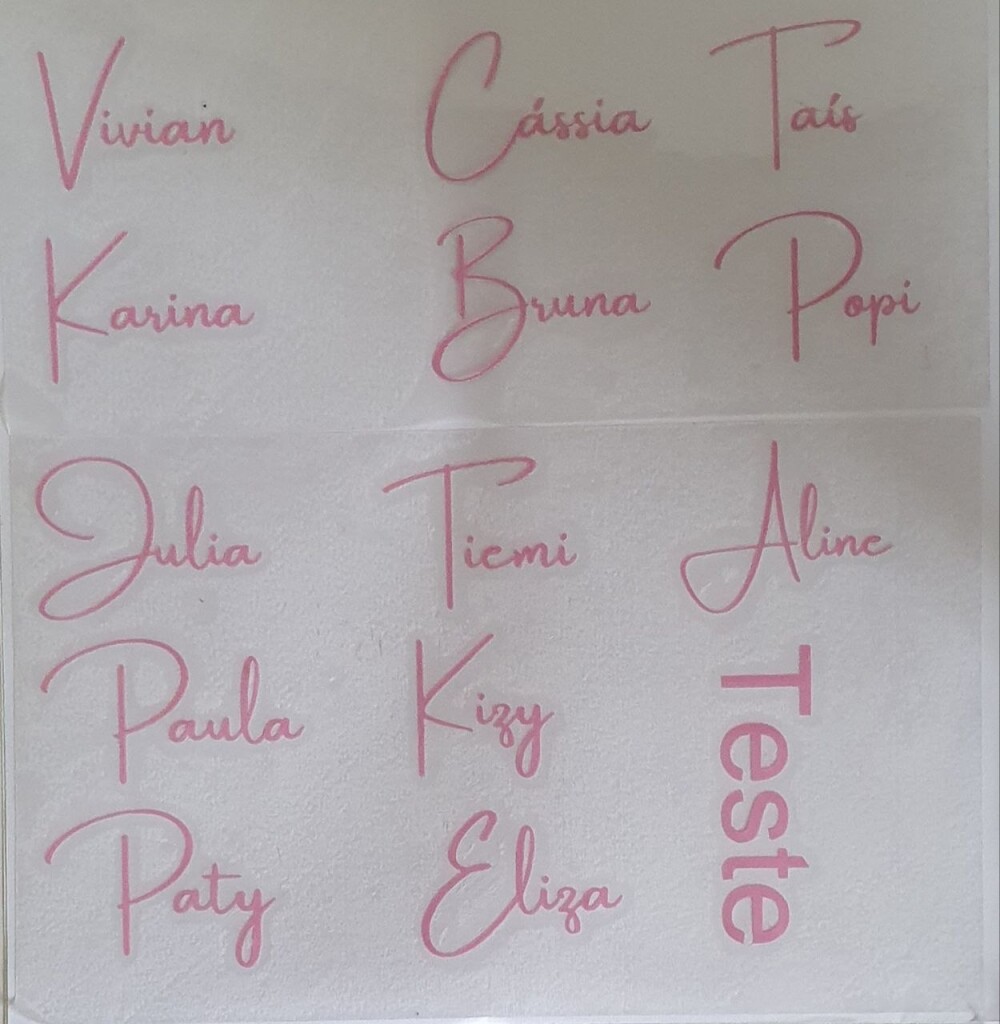 Vivian Cássia Taís
Karina Bruna Popi
Julia Tiemi Aline
Paula Kizy Teste
Paty Eliza